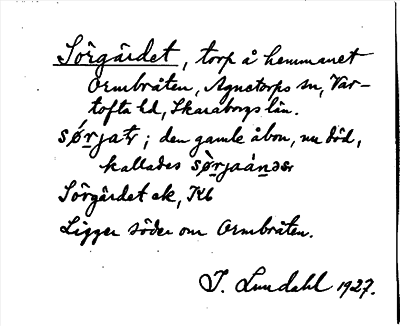 Sörgärdet, torp å hemmanet
Ormbråten, Agnetorps sn, Var-
tofta hd, Skaraborgs län.
sø̀rjatɾ; den gamle åbon, nu död,
kallades sø̀rjaánəs
Sörgärdet ek, Kb
Ligger söder om Ormbråten.
I. Lundahl 1927.